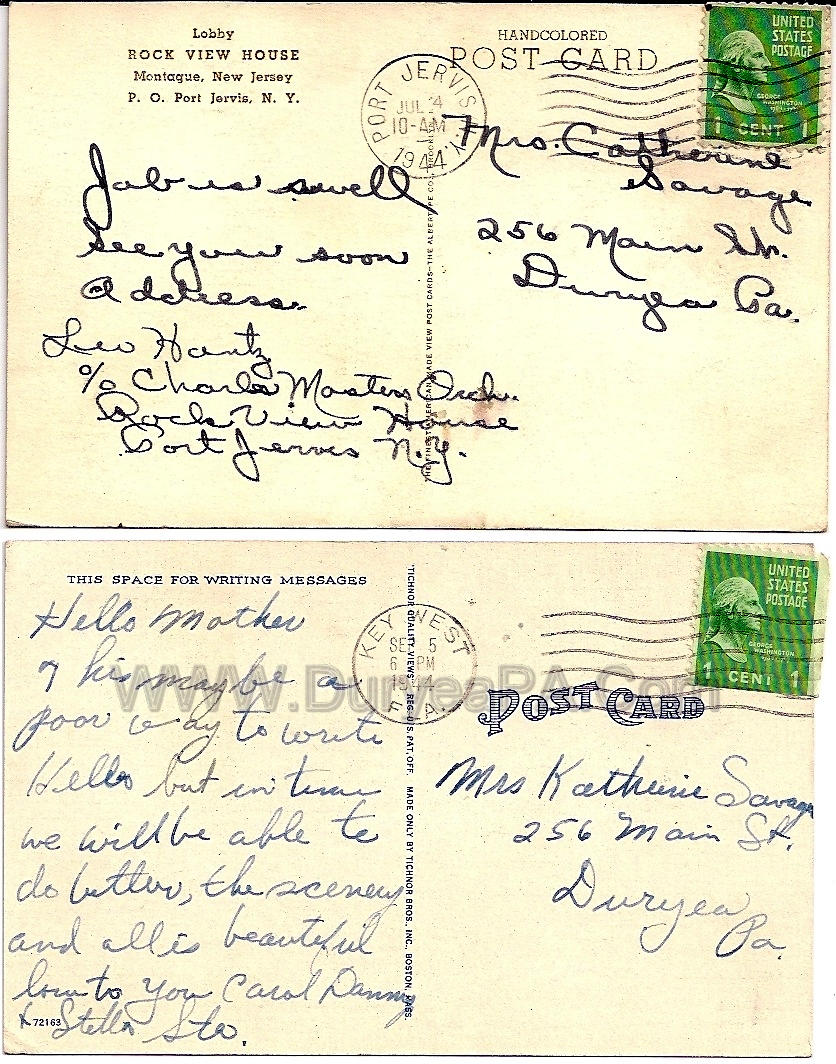 Lobby
ROCK VIEW HOUSE
Montague, New Jersey
P. O. Port Jervis, N. Y.
HANDCOLORED
POST CARD
PORT JERVIS N.Y.
JUL 4
10-AM
1944
UNITED
STATES
POSTAGE
GEORGE
WASHINGTON
1 CENT 1
Job is swell
See you soon
Address.
Leo Hantz
c/o Charles Masters Orch.
Rock View House
Port Jervis N.Y.
Mrs. Catherine
Savage
256 Main St.
Duryea Pa.
THE FINEST AMERICAN MADE VIEW POST CARDS—THE ALBERTYPE CO., BROOKLYN
THIS SPACE FOR WRITING MESSAGES
Hello Mother
This may be a
poor way to write
Hello but in time
we will be able to
do better, the scenery
and all is beautiful
love to you Carol Danny
& Stella
72163
TICHNOR QUALITY VIEWS REG. U.S. PAT. OFF. MADE ONLY BY TICHNOR BROS., INC., BOSTON, MASS.
KEY WEST
5
PM
1944
FLA.
UNITED
STATES
POSTAGE
GEORGE
WASHINGTON
1 CENT 1
POST CARD
Mrs Katherine Savage
256 Main St.
Duryea
Pa.
WWW.DuryeaPA.Com